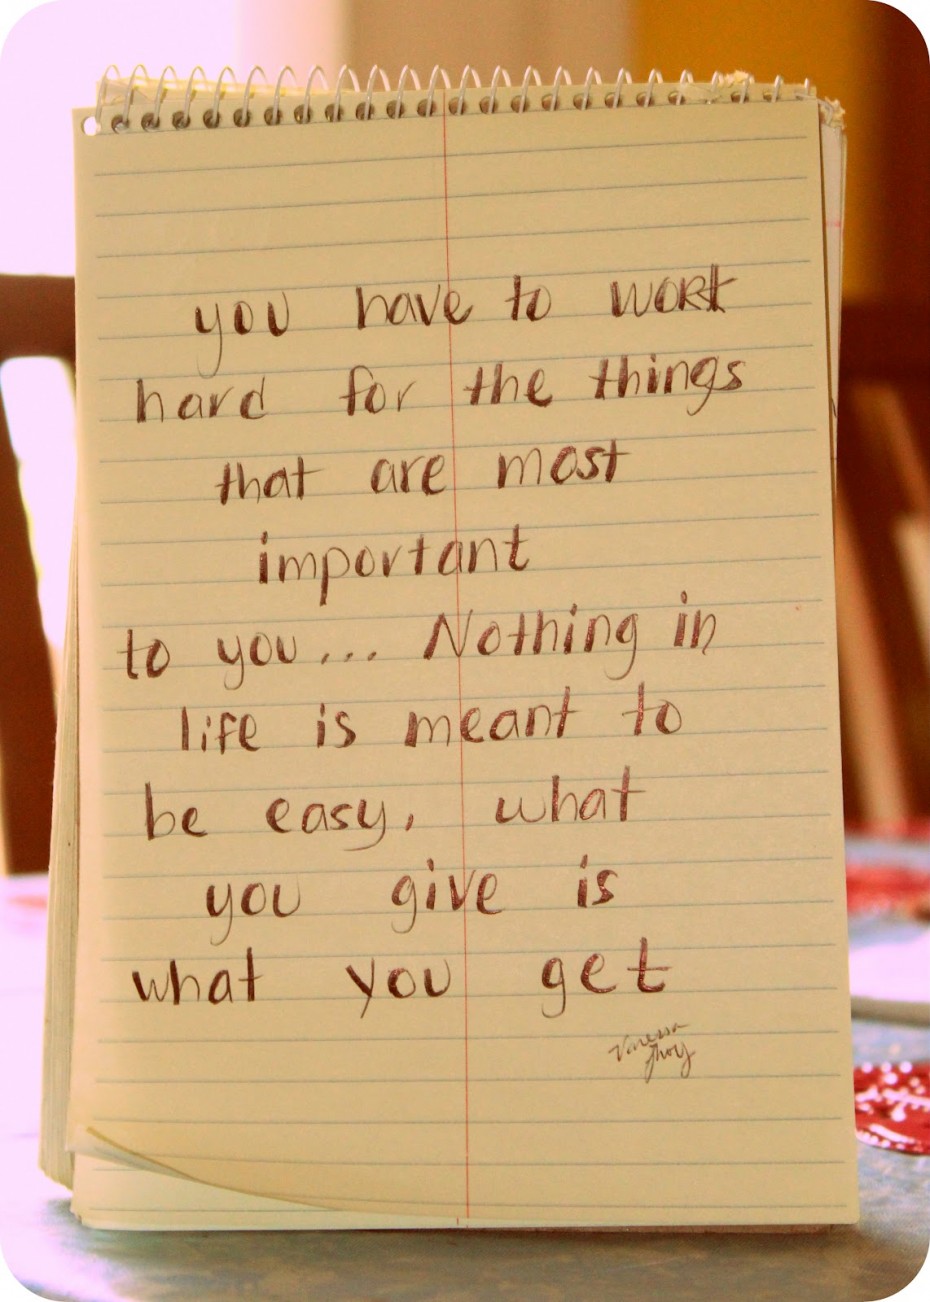 you have to work
hard for the things
that are most
important
to you... Nothing in
life is meant to
be easy, what
you give is
what you get
Vanessa